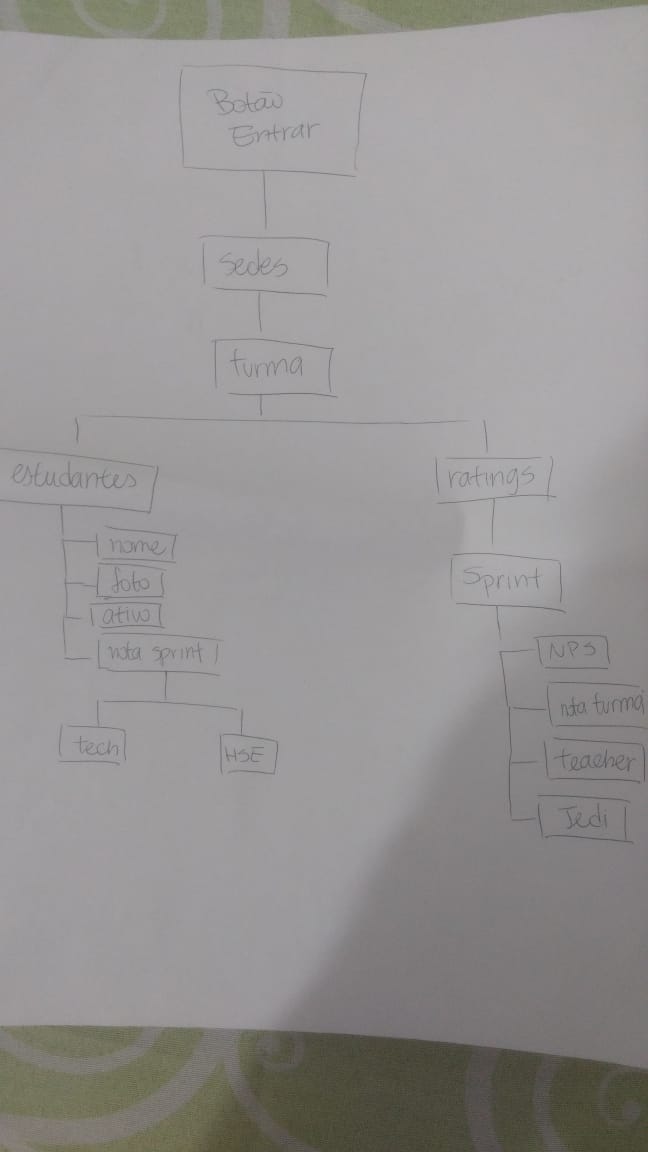 Botão
Entrar
Sedes
turma
estudantes
nome
foto
ativo
nota sprint
tech
HSE
ratings
Sprint
NPS
nota turma
teacher
Jedi